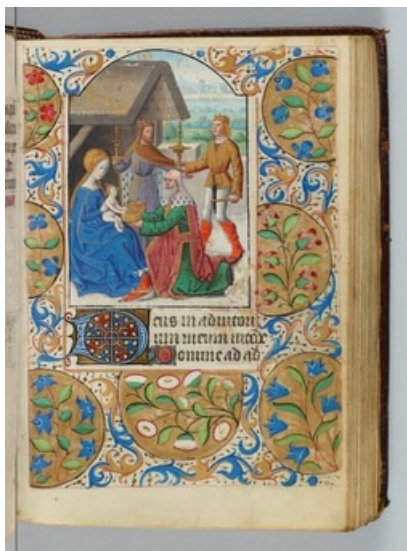 Deus in adiutori
um meum intēde
Domine ad ad